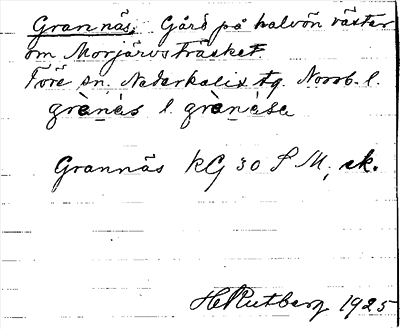 Grannäs. Gård på halvön väster
om Morjärvsträsket.
Töre sn. Nederkalix tg. Norrb. l.
grànäs l. grànäsa
Grannäs KG 30 S M, ek.
H Rutberg 1925